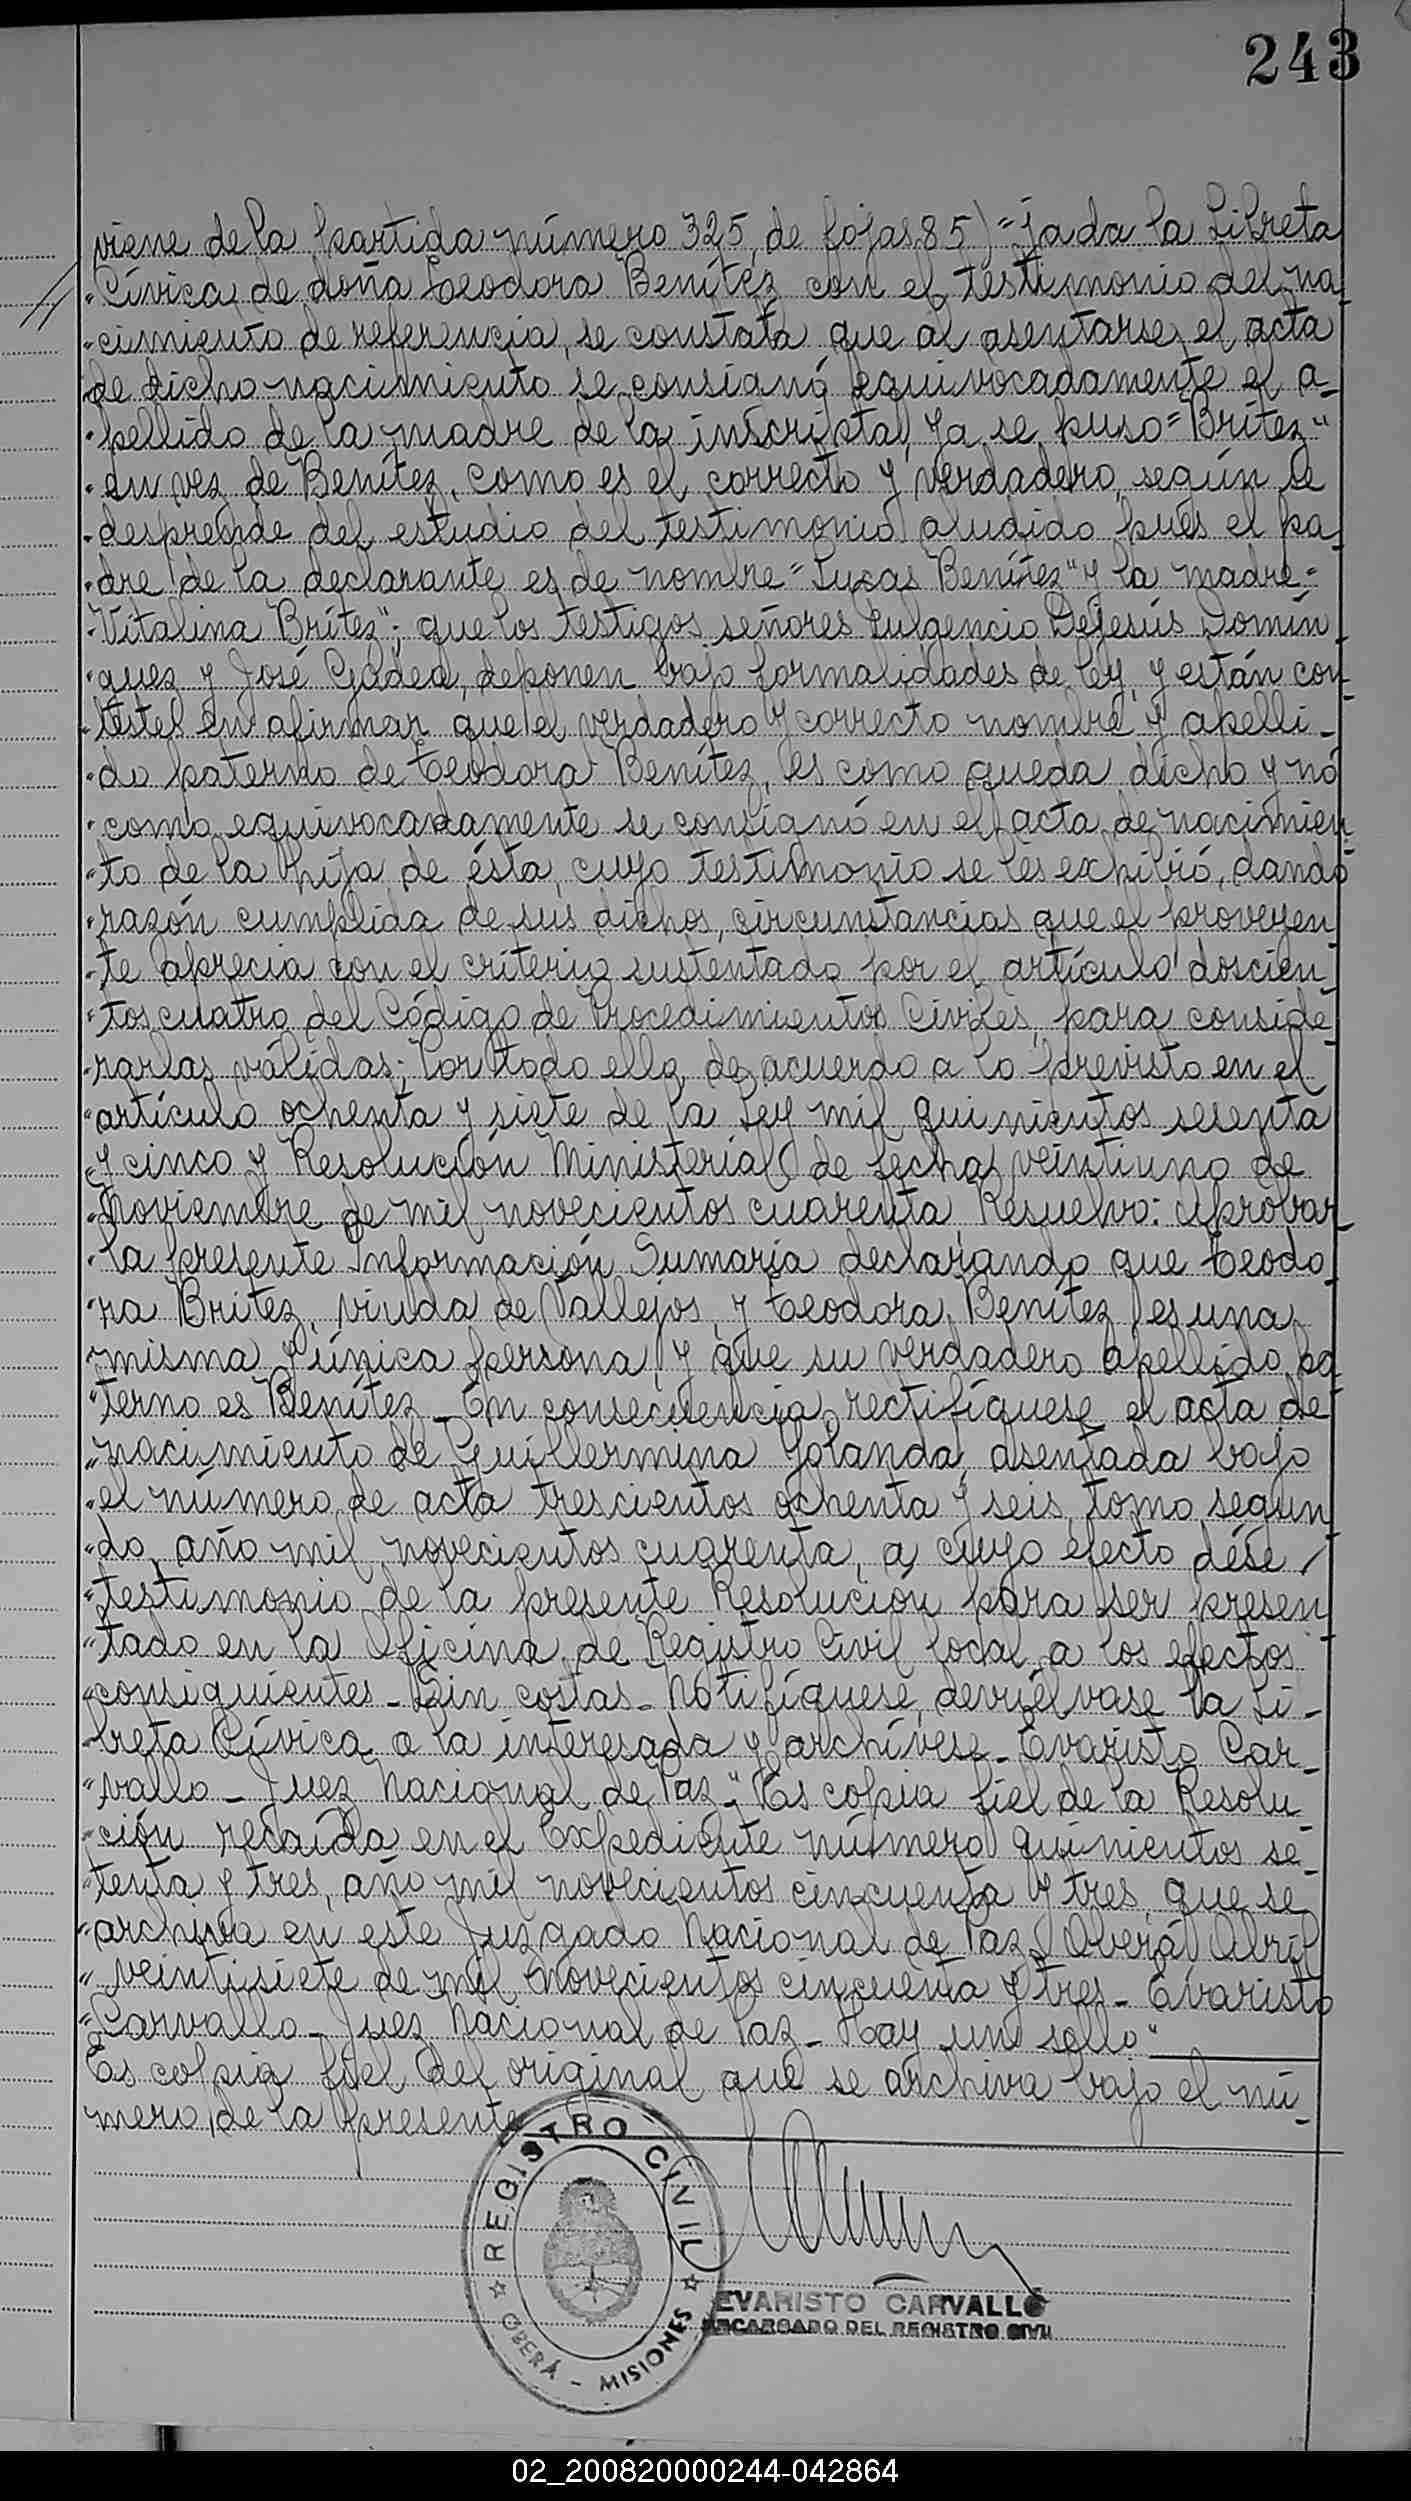 243
viene de la partida número 325, de fojas 85) "jada la Libreta
"Cívica de doña Teodora Benítez con el testimonio del na
"cimiento de referencia, se constata que al asentarse el acta
"de dicho nacimiento se consignó equivocadamente el a-
"pellido de la madre de la inscripta, ya se puso "Brítez"
"en vez de Benítez, como es el correcto y verdadero, según se
"desprende del estudio del testimonio aludido pues el pa
"dre de la declarante es de nombre "Lucas Benítez" y la madre "
"Vitalina Brítez"; que los testigos señores Fulgencio Dejesús Domín
"guez y José Godea, deponen bajo formalidades de ley, y están con
"testes en afirmar que el verdadero y correcto nombre y apelli-
"do paterno de Teodora Benítez, es como queda dicho y nó
"como equivocadamente se consignó en el acta de nacimien
"to de la hija de ésta, cuyo testimonio se les exhibió, dando
"razón cumplida de sus dichos, circunstancias que el proveyen
"te aprecia con el criterio sustentado por el artículo doscien
"tos cuatro del Código de Procedimientos Civiles, para conside
"rarlas válidas; Por todo ello, de acuerdo a lo previsto en el
"artículo ochenta y siete de la Ley mil quinientos sesenta
"y cinco y Resolución Ministerial de fecha veintiuno de
"Noviembre de mil novecientos cuarenta, Resuelvo: Aprobar
"la presente Información Sumaria declarando que Teodo
"ra Brítez, viuda de Vallejos, y Teodora Benítez es una
"misma y única persona, y que su verdadero apellido pa
"terno es Benítez_ En consecuencia, rectifíquese el acta de
"nacimiento de Guillermina Yolanda, asentada bajo
"el número de acta trescientos ochenta y seis, tomo segun
"do, año mil novecientos cuarenta, a cuyo efecto dése
"testimonio de la presente Resolución para ser presen
"tado en la Oficina de Registro Civil local a los efectos
"consiguientes_ Sin costas_ Notifíquese, devuélvase la Li-
"breta Cívica a la interesada y archívese_ Evaristo Car-
"vallo_ Juez Nacional de Paz_" Es copia fiel de la Resolu
"ción recaída en el Expediente número quinientos se-
"tenta y tres, año mil novecientos cincuenta y tres, que se
"archiva en este Juzgado Nacional de Paz_ Oberá Abril
"veintisiete de mil novecientos cincuenta y tres_ Evaristo
"Carvallo_ Juez Nacional de Paz_ Hay un sello"
Es copia fiel del original que se archiva bajo el nú-
mero de la presente
REGISTRO CIVIL
OBERÁ - MISIONES
EVARISTO CARVALLO
ENCARGADO DEL REGISTRO CIVIL
02_200820000244-042864